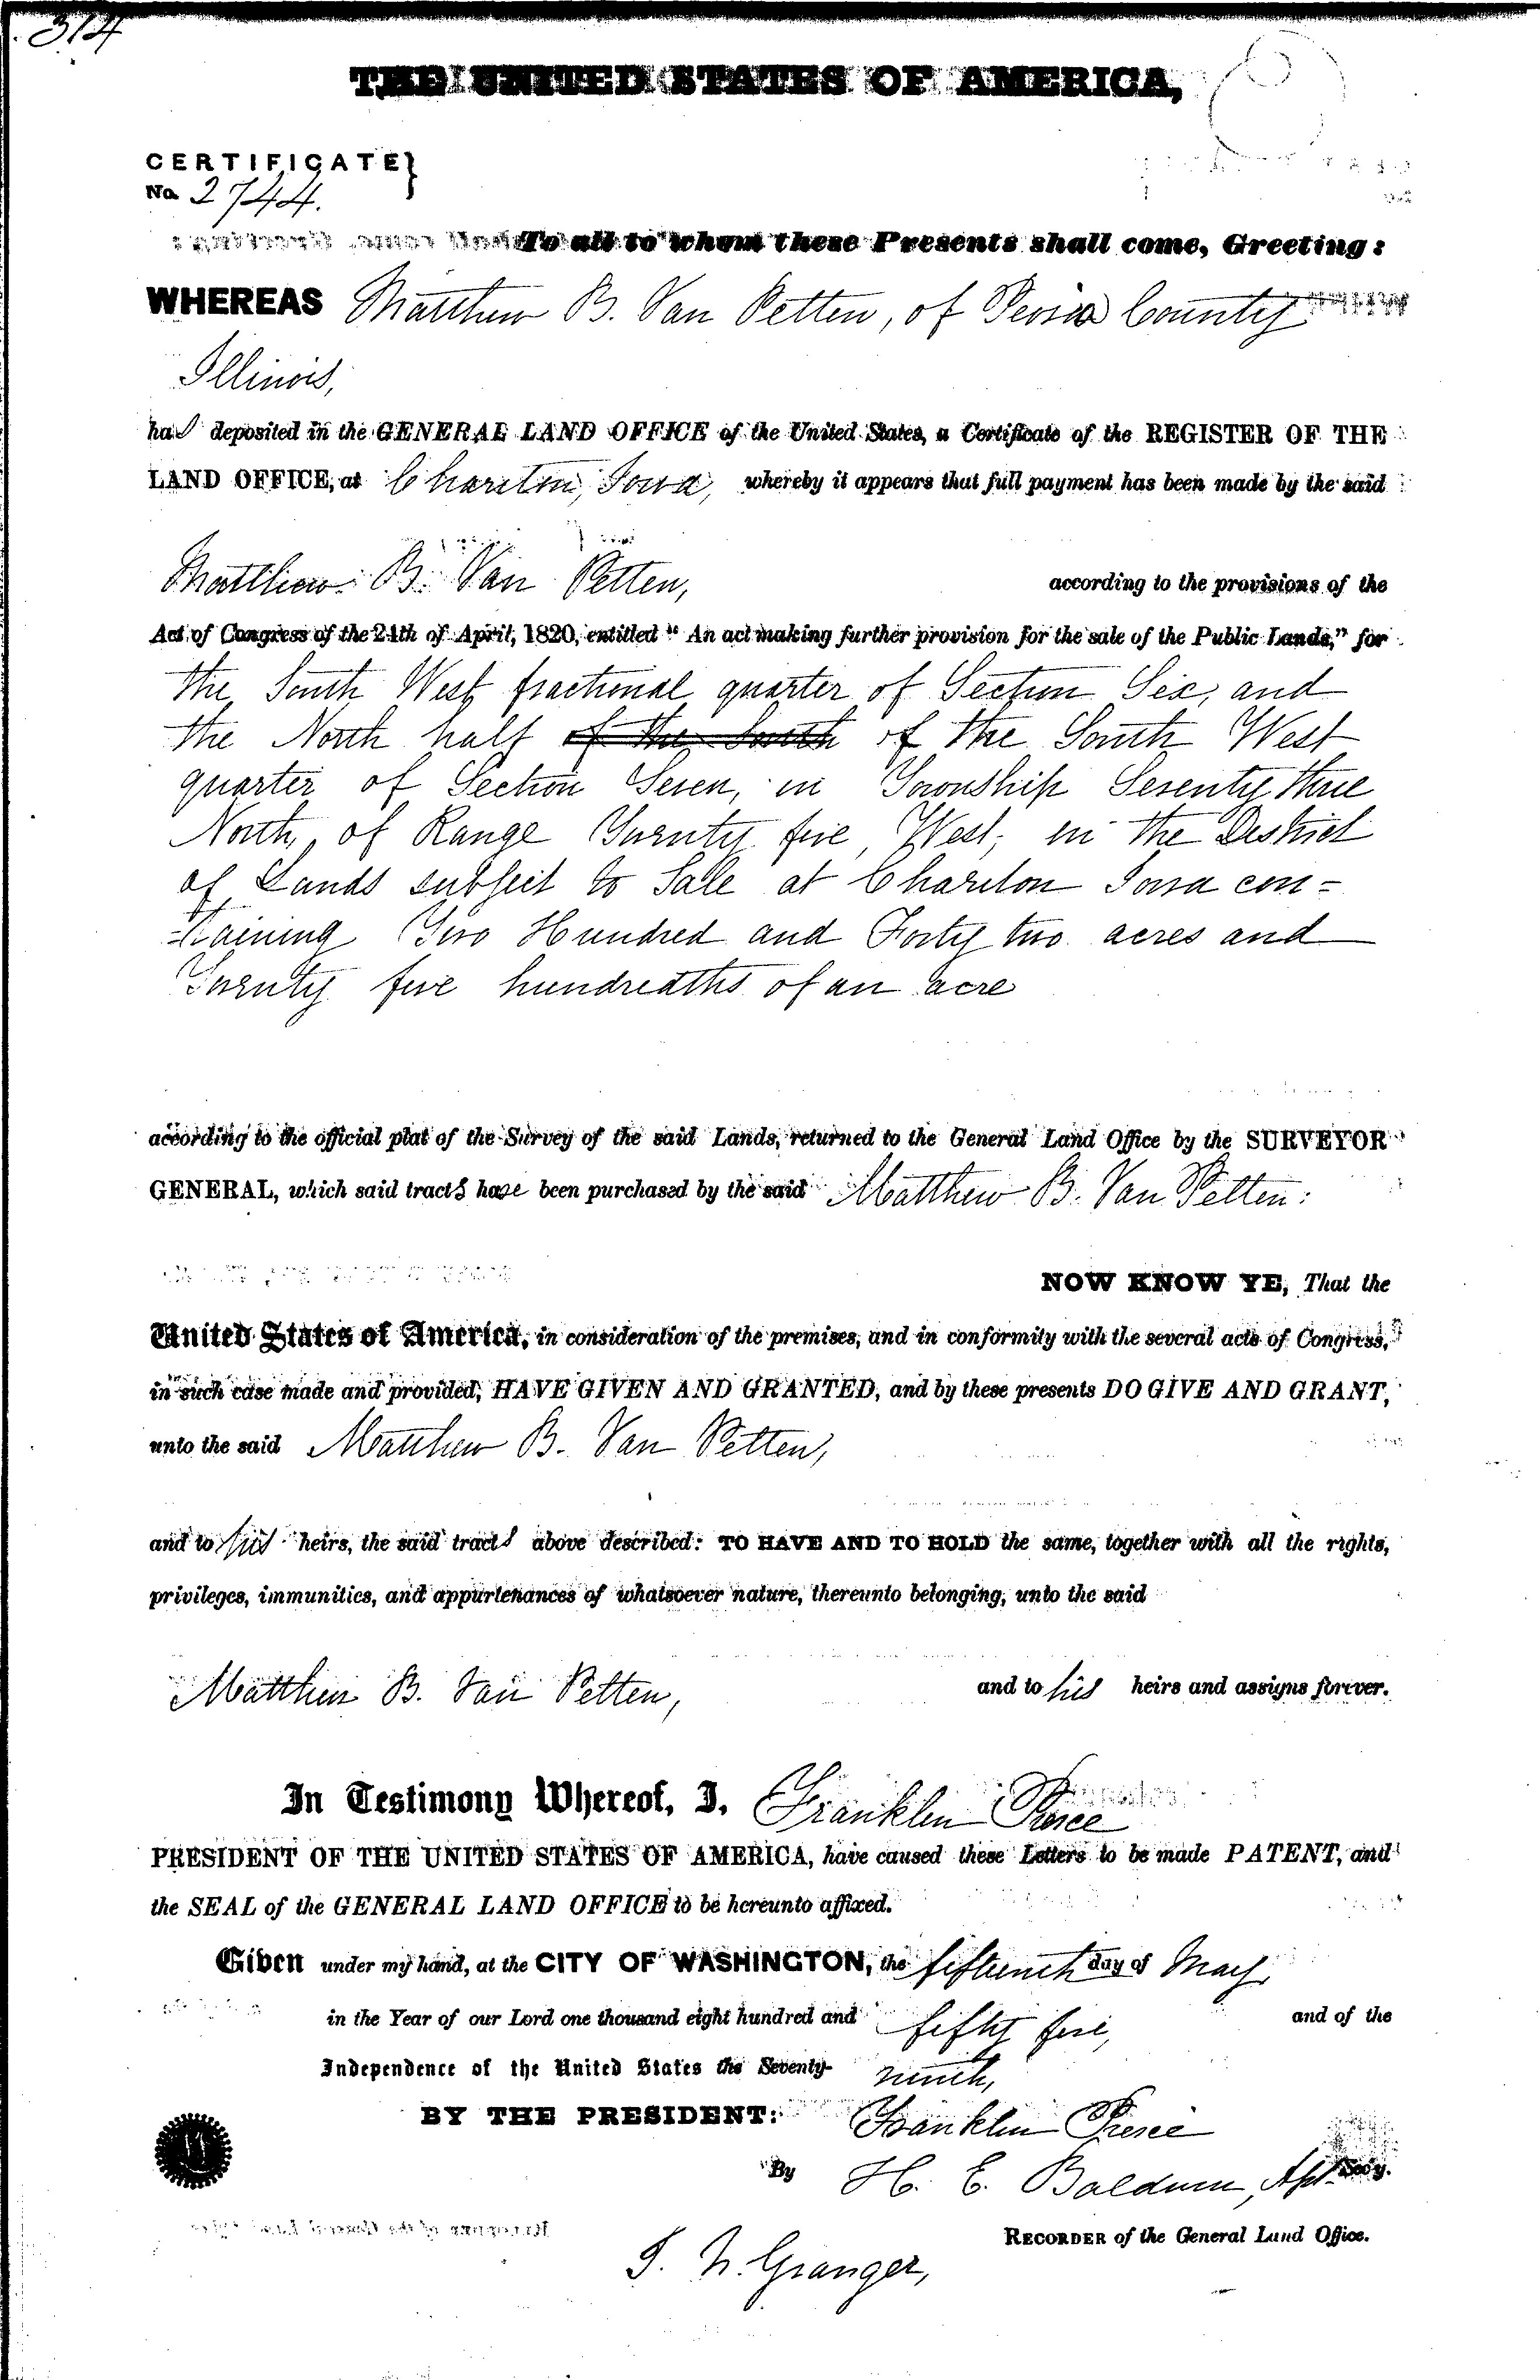 314
THE UNITED STATES OF AMERICA,
CERTIFICATE}
No. 2744.
To all to whom these Presents shall come, Greeting:
WHEREAS Matthew B. Van Petten, of Peoria County
Illinois,
has deposited in the GENERAL LAND OFFICE of the United States, a Certificate of the REGISTER OF THE
LAND OFFICE, at Chariton, Iowa, whereby it appears that full payment has been made by the said
Matthew B. Van Petten, according to the provisions of the
Act of Congress of the 24th of April, 1820, entitled "An act making further provision for the sale of the Public Lands," for
the South West fractional quarter of Section Six, and
the North half of the South of the South West
quarter of Section Seven, in Township Seventy three
North, of Range Twenty five West, in the District
of Lands subject to Sale at Chariton Iowa con=
-taining Two Hundred and Forty two acres and
Twenty five hundreaths of an acre
according to the official plat of the Survey of the said Lands, returned to the General Land Office by the SURVEYOR
GENERAL, which said tracts have been purchased by the said Matthew B. Van Petten:
NOW KNOW YE, That the
United States of America, in consideration of the premises, and in conformity with the several acts of Congress,
in such case made and provided, HAVE GIVEN AND GRANTED, and by these presents DO GIVE AND GRANT,
unto the said Matthew B. Van Petten,
and to his heirs, the said tracts above described: TO HAVE AND TO HOLD the same, together with all the rights,
privileges, immunities, and appurtenances of whatsoever nature, thereunto belonging, unto the said
Matthew B. Van Petten, and to his heirs and assigns forever.
In Testimony Whereof, I, Franklin Pierce
PRESIDENT OF THE UNITED STATES OF AMERICA, have caused these Letters to be made PATENT, and
the SEAL of the GENERAL LAND OFFICE to be hereunto affixed.
Given under my hand, at the CITY OF WASHINGTON, the fifteenth day of May
in the Year of our Lord one thousand eight hundred and fifty five, and of the
Independence of the United States the Seventy-ninth,
BY THE PRESIDENT: Franklin Pierce
By H. E. Baldwin, Sec'y.
J. N. Granger, RECORDER of the General Land Office.